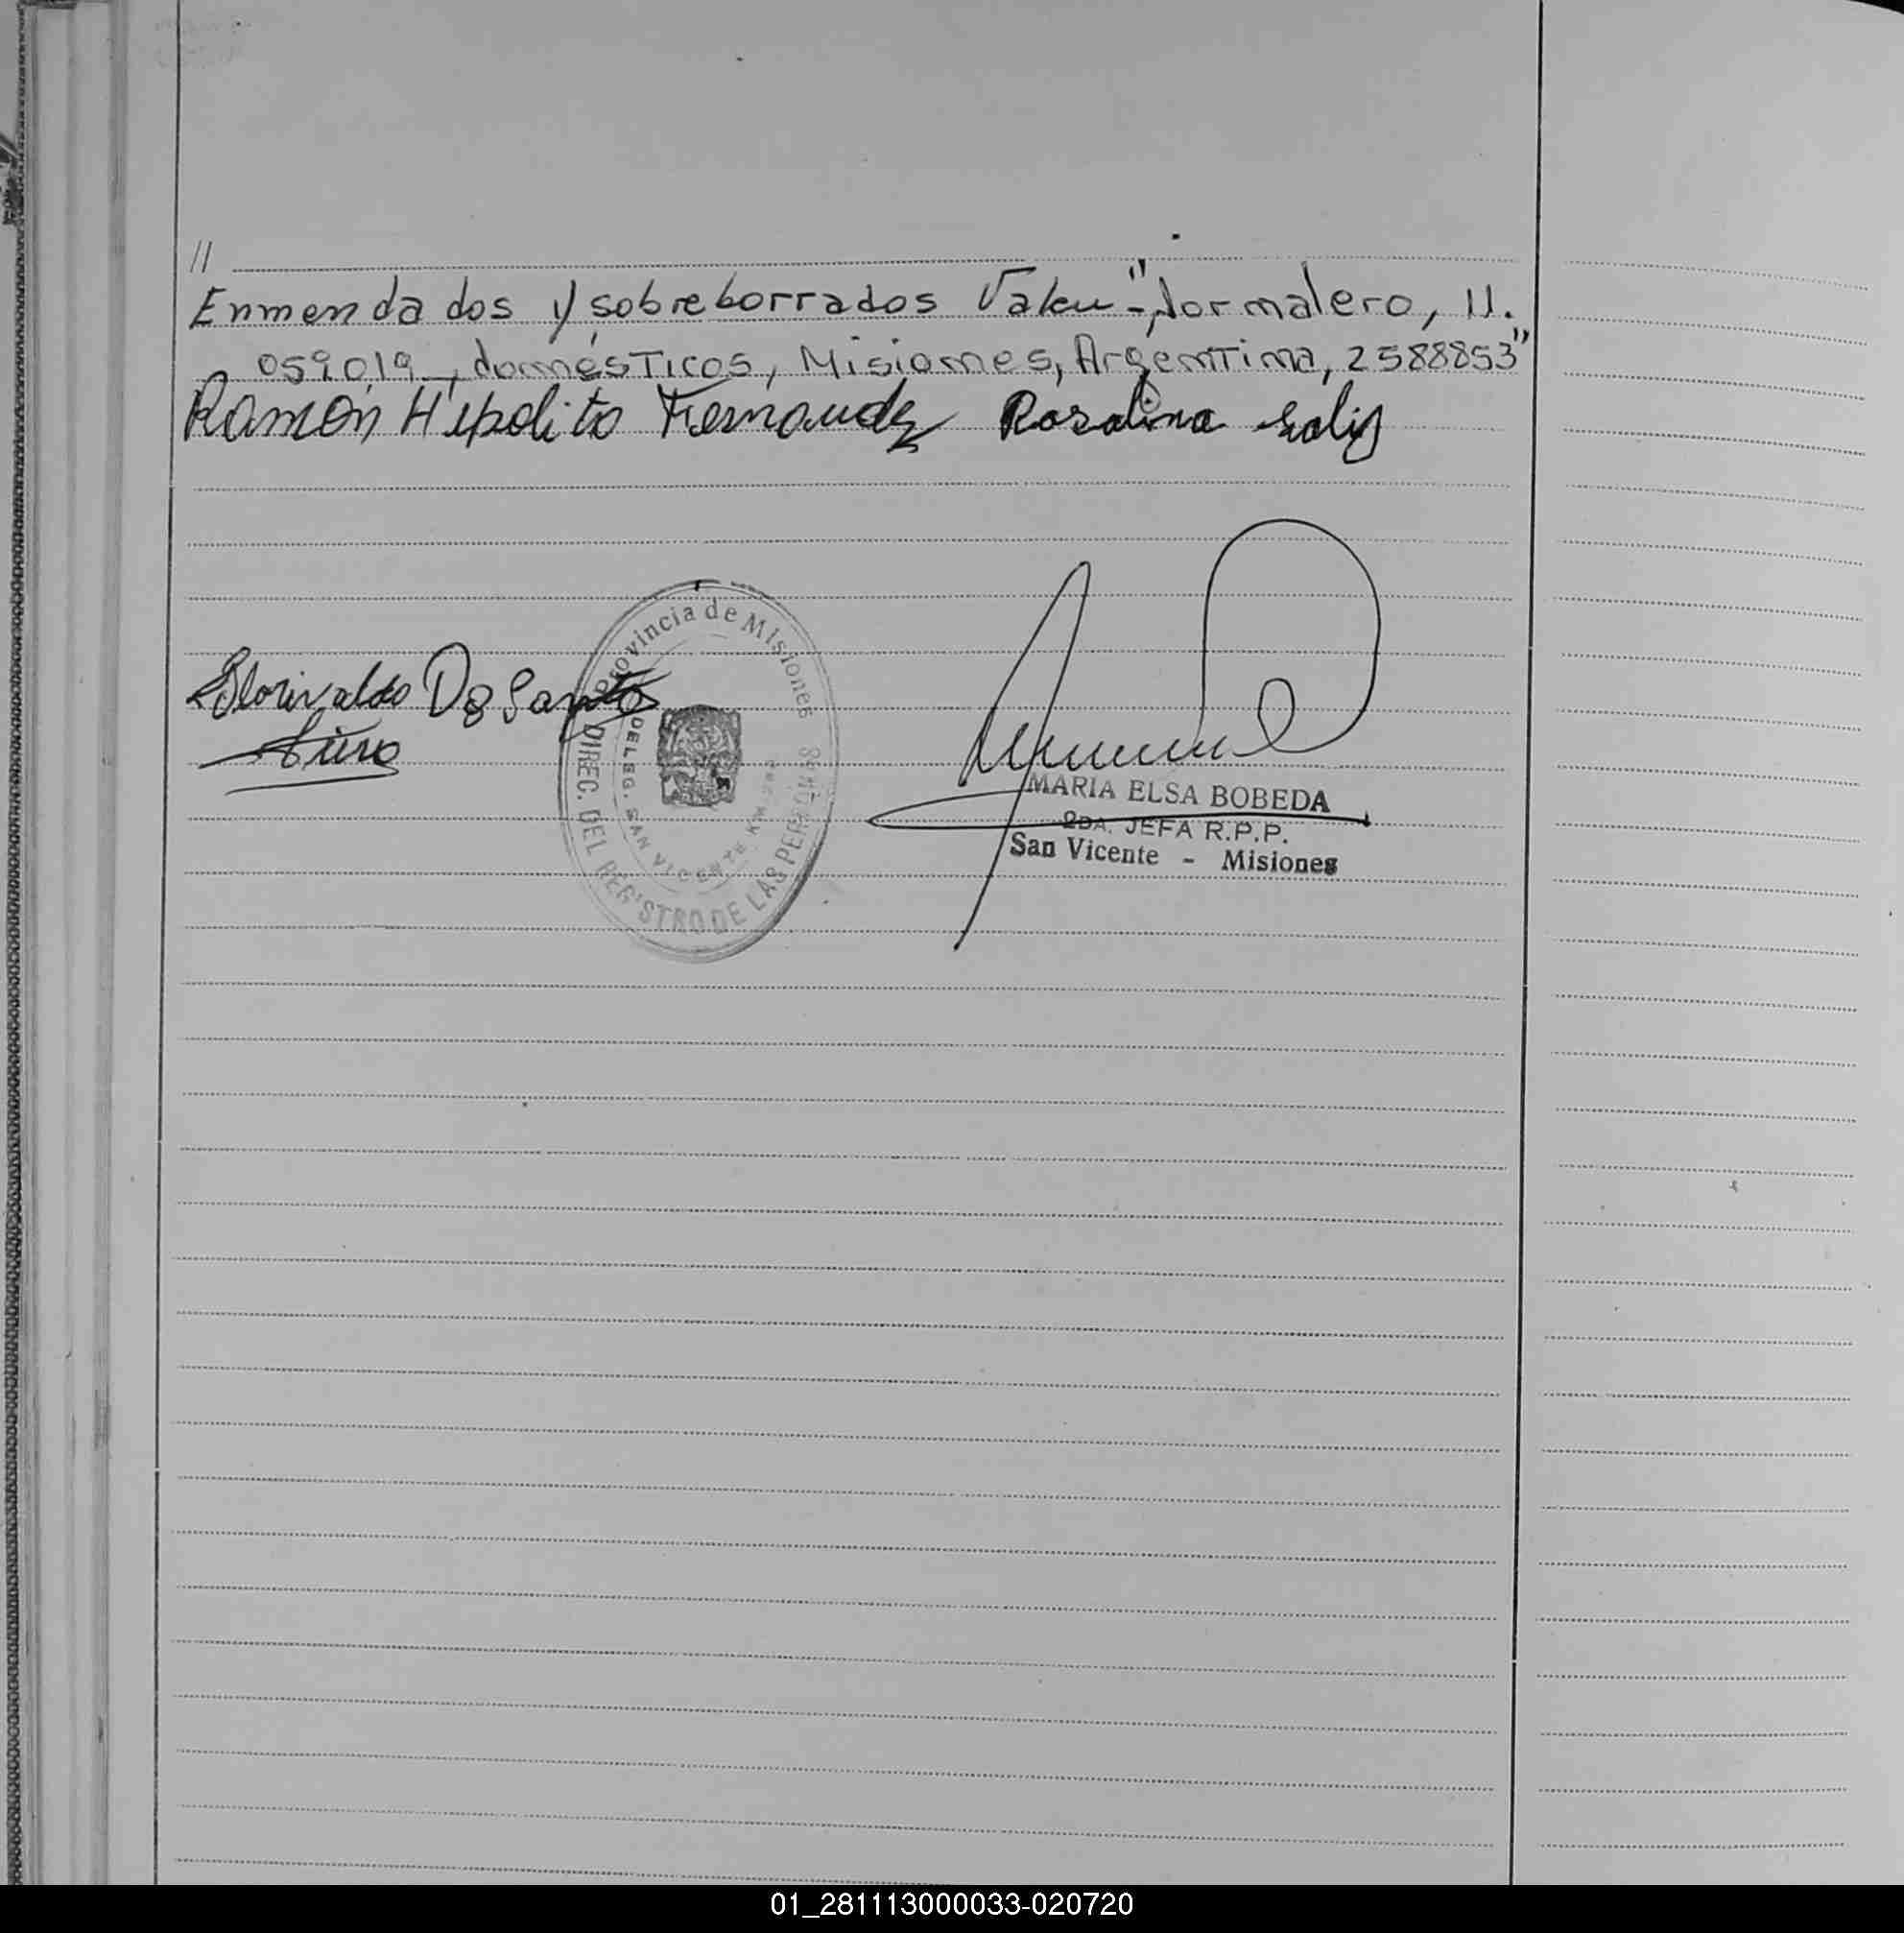 //
Enmendados y sobreborrados Valen "Jornalero, 11.
059019, domésticos, Misiones, Argentina, 2588853"
Ramón Hipolito Fernandez Rosalina Solis
Provincia de Misiones
DIREC. DEL REGISTRO DE LAS PERSONAS
DELEG. SAN VICENTE KM
Dos Santos
MARIA ELSA BOBEDA
2DA. JEFA R.P.P.
San Vicente - Misiones
01_281113000033-020720